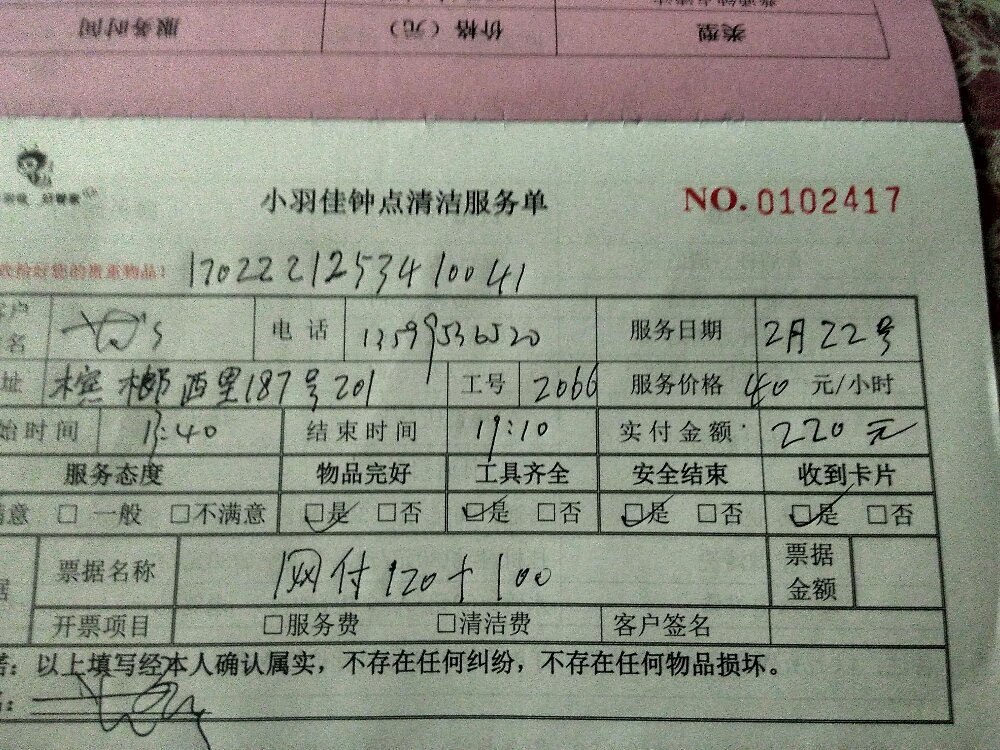 类型 价格（元） 服务时间
小羽佳钟点清洁服务单 NO.0102417
检好您的贵重物品！ 1702221253410041
户 电话 13599536520 服务日期 2月22号
名
址 槟榔西里187号201 工号 2066 服务价格 40 元/小时
始时间 13:40 结束时间 19:10 实付金额 220元
服务态度 物品完好 工具齐全 安全结束 收到卡片
意 □ 一般 □不满意 □是 □否 □是 □否 □是 □否 □是 □否
据 票据名称 网付120+100 票据金额
开票项目 □服务费 □清洁费 客户签名
：以上填写经本人确认属实，不存在任何纠纷，不存在任何物品损坏。